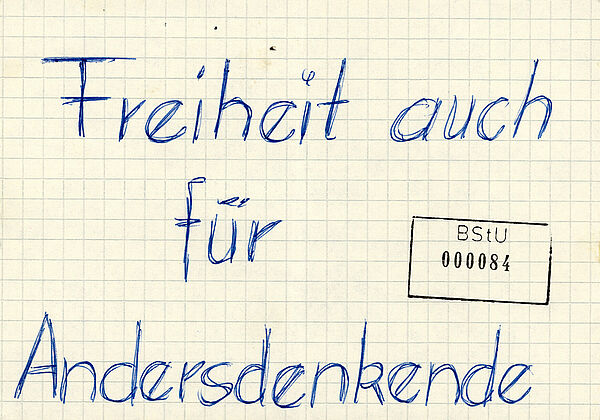 Freiheit auch
für
BStU
000084
Andersdenkende